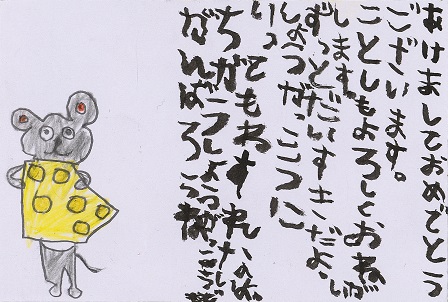 あけましておめでとう
ございます。
ことしもよろしくおねがい
します。
ずっとだいすきだよ。
しょうがっこうに
いっ
てもわすれないよ。
ちがうしょうがっこう
がんばろうね